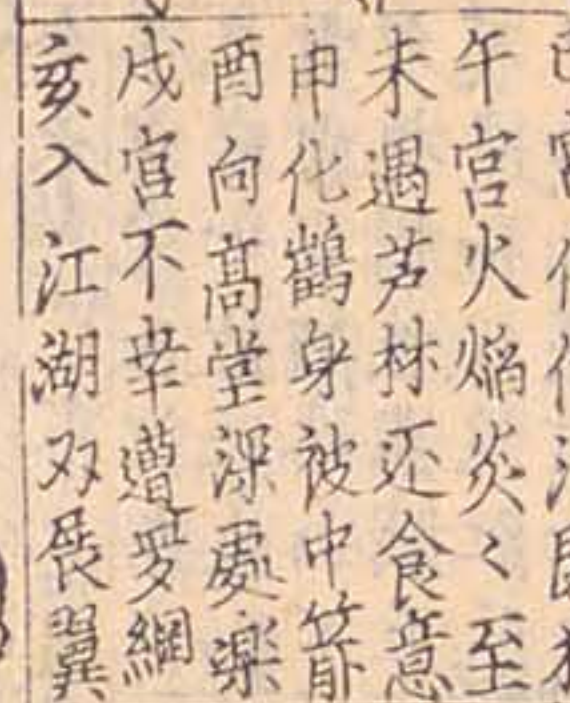 午宫火焰炎〻至
未遇芦林还食意
申化鶴身被中箭
酉向髙堂深處楽
戌宫不幸遭罗網
亥入江湖双展翼